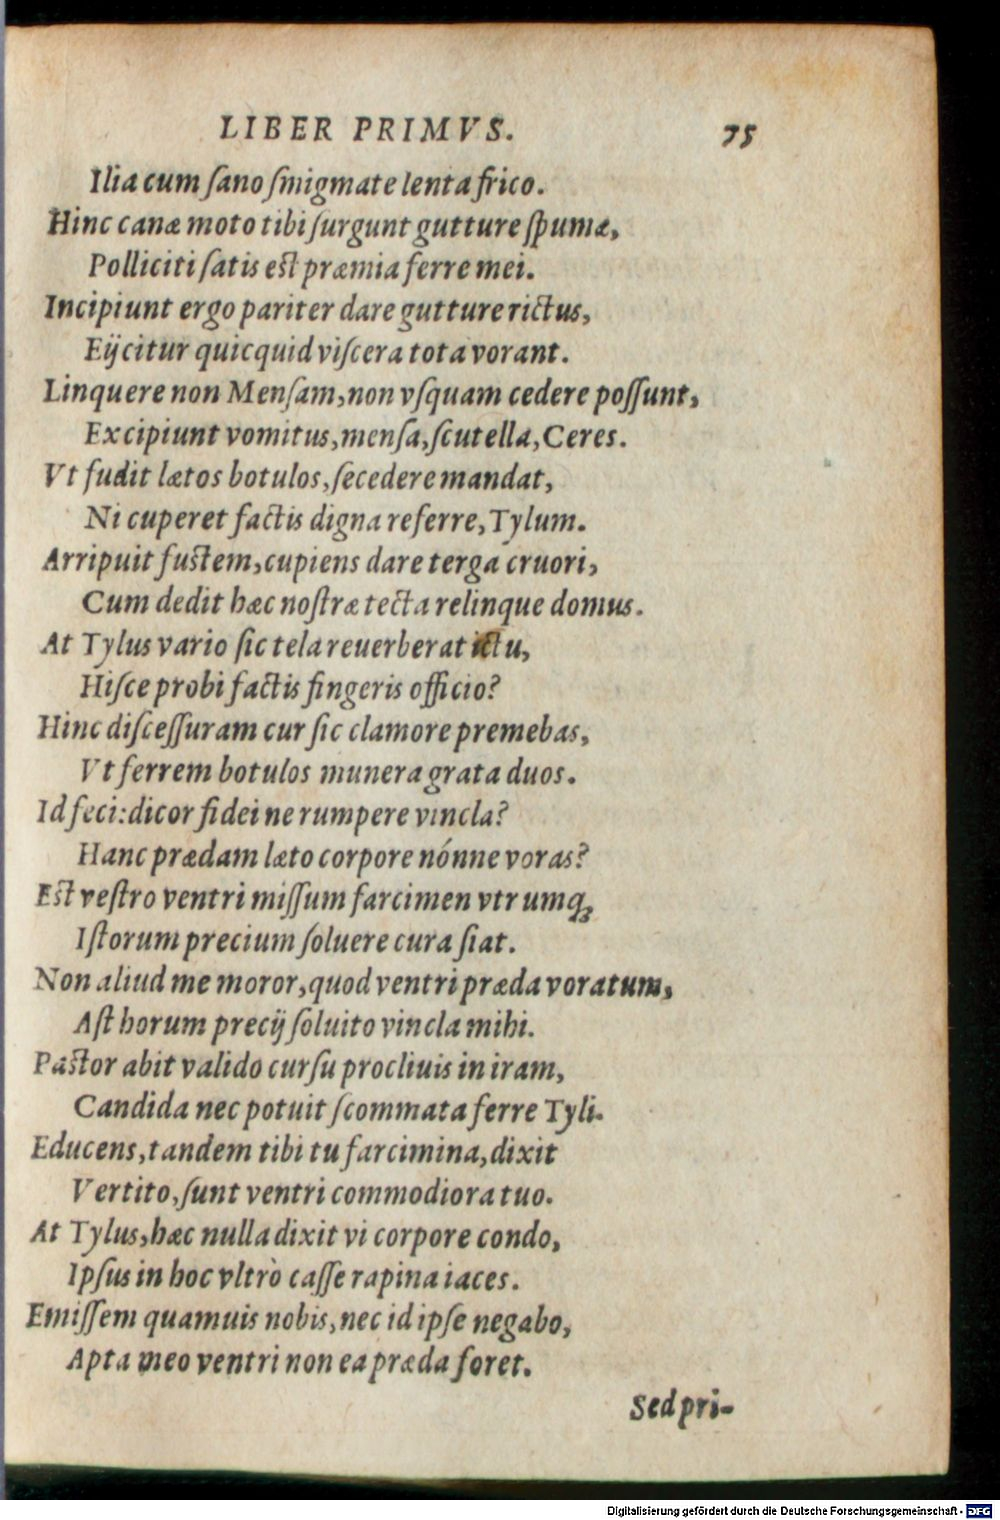 LIBER PRIMVS. 75
Ilia cum ſano ſmigmate lenta frico.
Hinc canæ moto tibi ſurgunt gutture ſpumæ,
Polliciti ſatis eſt præmia ferre mei.
Incipiunt ergo pariter dare gutture rictus,
Eijcitur quicquid viſcera tota vorant.
Linquere non Menſam, non vſquam cedere poſſunt,
Excipiunt vomitus, menſa, ſcutella, Ceres.
Vt fudit lætos botulos, ſecedere mandat,
Ni cuperet factis digna referre, Tylum.
Arripuit fuſtem, cupiens dare terga cruori,
Cum dedit hæc noſtræ tecta relinque domus.
At Tylus vario ſic tela reuerberat ictu,
Hiſce probi factis fingeris officio?
Hinc diſceſſuram cur ſic clamore premebas,
Vt ferrem botulos munera grata duos.
Id feci: dicor fidei ne rumpere vincla?
Hanc prædam læto corpore nónne voras?
Eſt veſtro ventri miſſum farcimen vtrumq́;
Iſtorum precium ſoluere cura ſiat.
Non aliud me moror, quod ventri præda voratum,
Aſt horum precij ſoluito vincla mihi.
Paſtor abit valido curſu procliuis in iram,
Candida nec potuit ſcommata ferre Tyli.
Educens, tandem tibi tu farcimina, dixit
Vertito, ſunt ventri commodiora tuo.
At Tylus, hæc nulla dixit vi corpore condo,
Ipſus in hoc vltrò caſſe rapina iaces.
Emiſſem quamuis nobis, nec id ipſe negabo,
Apta meo ventri non ea præda foret.
Sed pri-
Digitalisierung gefördert durch die Deutsche Forschungsgemeinschaft - DFG